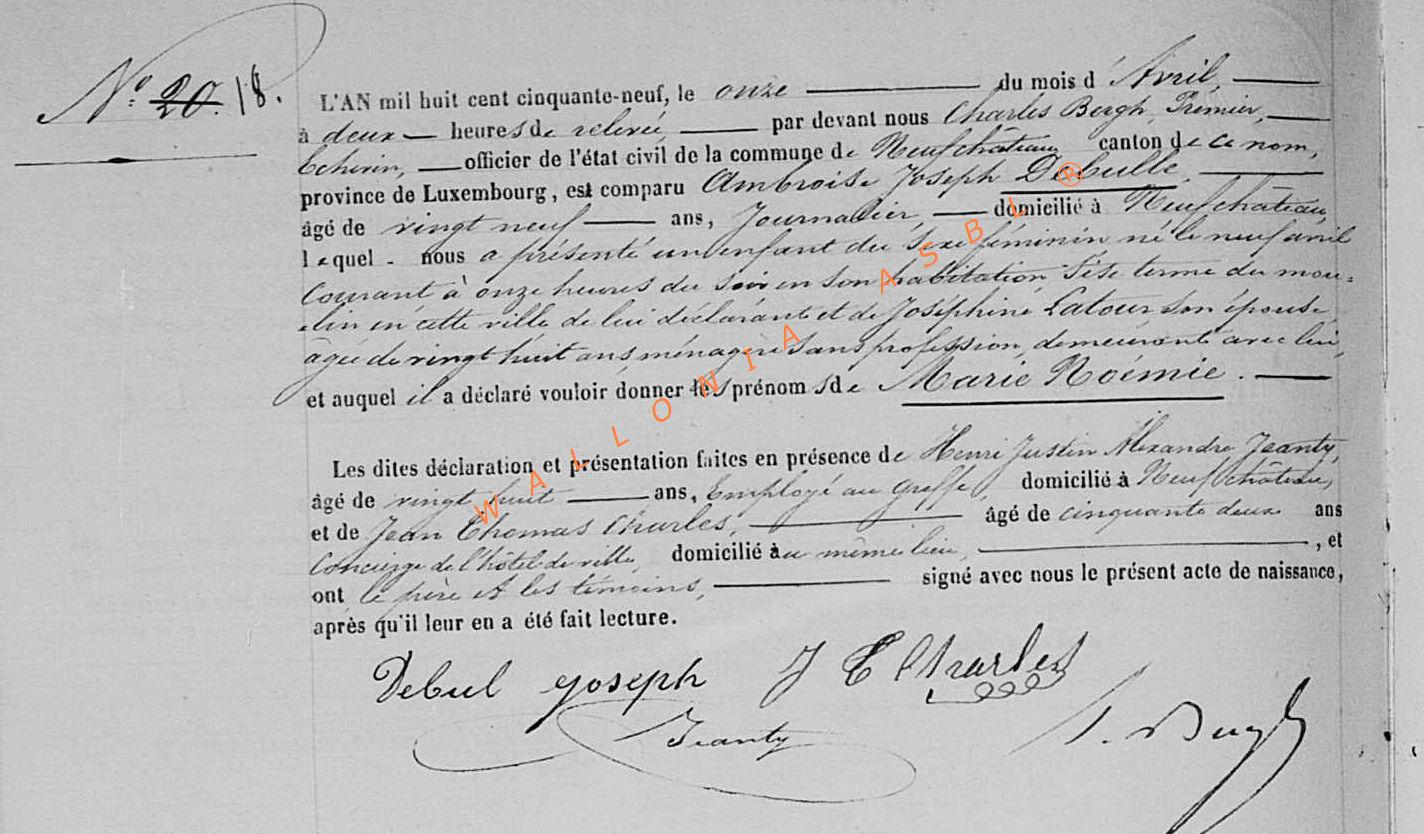 N° 20. 18.
L'AN mil huit cent cinquante-neuf, le onze du mois d'Avril,
à deux heures de relevée, par devant nous Charles Bergh, Prémier,
Echevin, officier de l'état civil de la commune de Neufchâteau canton de ce nom,
province de Luxembourg, est comparu Ambroise Joseph Debulle,
âgé de vingt neuf ans, Journalier, domicilié à Neufchâteau,
lequel nous a présenté un enfant du sexe féminin né le neuf avril
courant à onze heures du soir en son habitation sise terme du mou=
=lin en cette ville de lui déclarant et de Joséphine Latour son épouse,
âgée de vingt huit ans ménagère sans profession, demeurant avec lui,
et auquel il a déclaré vouloir donner les prénoms de Marie Noémie.
Les dites déclaration et présentation faites en présence de Henri Justin Alexandre Jeanty,
âgé de vingt huit ans, Employé au Greffe, domicilié à Neufchâteau,
et de Jean Thomas Charles, âgé de cinquante deux ans
Concierge de l'hôtel de ville, domicilié au même lieu, , et
ont le père et les témoins, signé avec nous le présent acte de naissance,
après qu'il leur en a été fait lecture.
Debul Joseph J T Charles
Jeanty
C. Bergh
WALLONIA ASBL ®